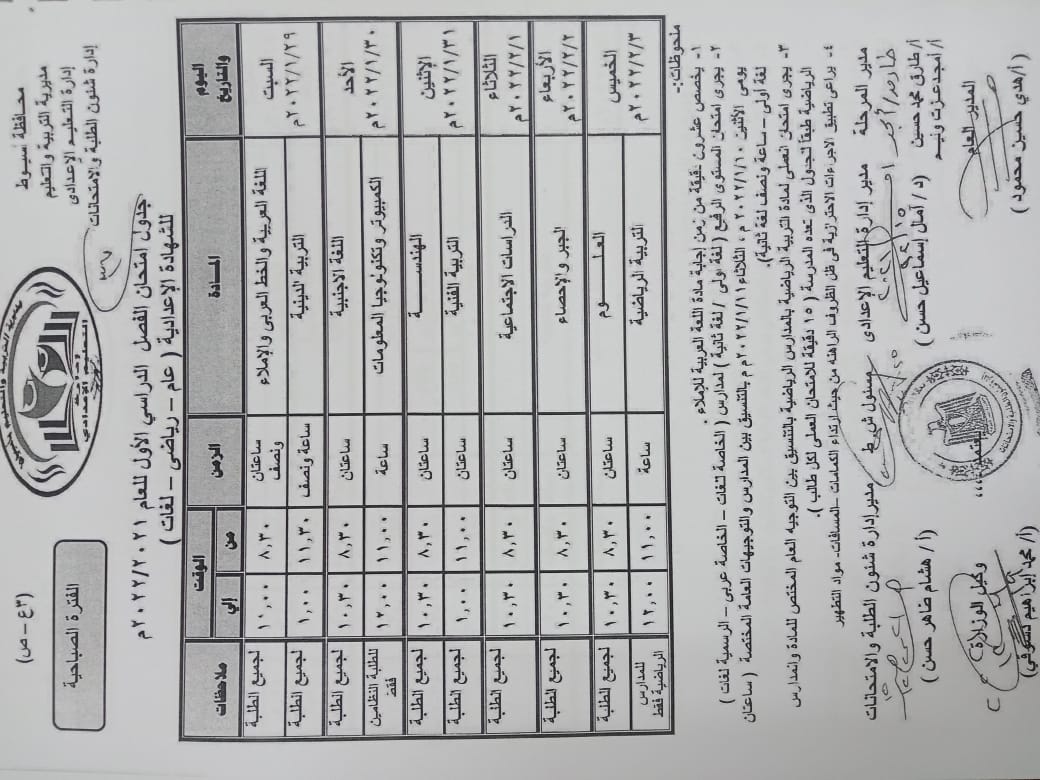 محافظة أسيوط
مديرية التربية والتعليم
إدارة التعليم الإعدادى
إدارة شئون الطلبة والامتحانات
(٣ع – ص)
الفترة الصباحية
جدول امتحان الفصل الدراسي الأول للعام ٢٠٢٢/٢٠٢١م
للشهادة الإعدادية ( عام – رياضى – لغات )
اليوم والتاريخ المادة الزمن الوقت ملاحظات
من إلي
السبت ٢٠٢٢/١/٢٩م اللغة العربية والخط العربى والإملاء ساعتان ونصف ٨,٣٠ ١٠,٠٠ لجميع الطلبة
التربية الدينية ساعة ونصف ١١,٣٠ ١,٠٠ لجميع الطلبة
الأحد ٢٠٢٢/١/٣٠م اللغة الاجنبية ساعتان ٨,٣٠ ١٠,٣٠ لجميع الطلبة
الكمبيوتر وتكنولوجيا المعلومات ساعة ١١,٠٠ ١٢,٠٠ للطلبة النظاميين فقط
الإثنين ٢٠٢٢/١/٣١م الهندسة ساعتان ٨,٣٠ ١٠,٣٠ لجميع الطلبة
التربية الفنية ساعتان ١١,٠٠ ١,٠٠ لجميع الطلبة
الثلاثاء ٢٠٢٢/٢/١م الدراسات الاجتماعية ساعتان ٨,٣٠ ١٠,٣٠ لجميع الطلبة
الأربعاء ٢٠٢٢/٢/٢م الجبر والإحصاء ساعتان ٨,٣٠ ١٠,٣٠ لجميع الطلبة
الخميس ٢٠٢٢/٢/٣م العلوم ساعتان ٨,٣٠ ١٠,٣٠ لجميع الطلبة
التربية الرياضية ساعة ١١,٠٠ ١٢,٠٠ للمدارس الرياضية فقط
ملحوظات:-
١- يخصص عشرون دقيقة من زمن إجابة مادة اللغة العربية للإملاء .
٢- يجرى امتحان المستوى الرفيع ( لغة اولى / لغة ثانية ) لمدارس ( الخاصة لغات – الخاصة عربى – الرسمية لغات )
يومى الأثنين ٢٠٢٢/١/١٠م ، الثلاثاء ٢٠٢٢/١/١١م بالتنسيق بين المدارس والتوجيهات العامة المختصة ( ساعتان
لغة أولى – ساعة ونصف لغة ثانية).
٣- يجرى امتحان العملى لمادة التربية الرياضية بالمدارس الرياضية بالتنسيق بين التوجيه العام المختص للمادة والمدارس
الرياضية طبقاً للجدول الذى تعده المدرسة ( ١٥ دقيقة للامتحان العملى لكل طالب ).
٤- يراعى تطبيق الاجراءات الاحترازية فى ظل الظروف الراهنه من حيث إرتداء الكمامات – المسافات – مواد التطهير
مدير المرحلة مدير إدارة التعليم الإعدادى مسئول ش ط مدير إدارة شئون الطلبة والامتحانات
أ/ طارق محمد حسين
أ/ أمجد عزت ونيس
( د / أمال إسماعيل حسن )
( أ / هشام طاهر حسن )
المدير العام
يعتمد ،،،
وكيل الوزارة
( أ/ هدي حسين محمود )
(أ/ محمد إبراهيم دسوقي)